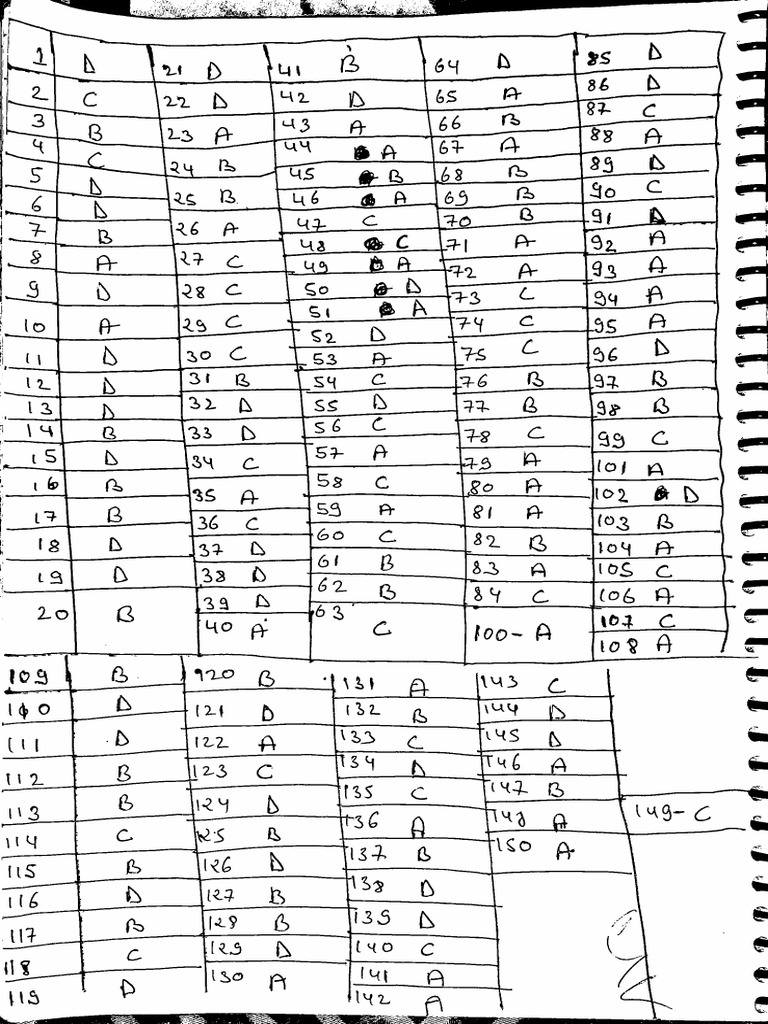 1 D
2 C
3 B
4 C
5 D
6 D
7 B
8 A
9 D
10 A
11 D
12 D
13 D
14 B
15 D
16 B
17 B
18 D
19 D
20 B
21 D
22 D
23 A
24 B
25 B
26 A
27 C
28 C
29 C
30 C
31 B
32 D
33 D
34 C
35 A
36 C
37 D
38 D
39 D
40 A
41 B
42 D
43 A
44 A
45 B
46 A
47 C
48 C
49 A
50 D
51 A
52 D
53 A
54 C
55 D
56 C
57 A
58 C
59 A
60 C
61 B
62 B
63 C
64 D
65 A
66 B
67 A
68 B
69 B
70 B
71 A
72 A
73 C
74 C
75 C
76 B
77 B
78 C
79 A
80 A
81 A
82 B
83 A
84 C
100- A
85 D
86 D
87 C
88 A
89 D
90 C
91 D
92 A
93 A
94 A
95 A
96 D
97 B
98 B
99 C
101 A
102 D
103 B
104 A
105 C
106 A
107 C
108 A
109 B
110 D
111 D
112 B
113 B
114 C
115 B
116 D
117 B
118 C
119 D
120 B
121 D
122 A
123 C
124 D
125 B
126 D
127 B
128 B
129 D
130 A
131 A
132 B
133 C
134 D
135 C
136 A
137 B
138 D
139 D
140 C
141 A
142 A
143 C
144 D
145 D
146 A
147 B
148 A
150 A
149- C